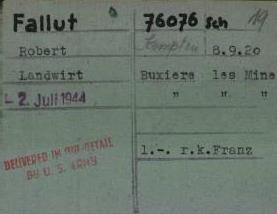 Fallut 76076 Sch 19
Robert Kempten 8.9.20
Landwirt Buxiere les Mine
2. Juli 1944 " " "
DELIVERED IN OUR DETAIL
BY U. S. ARMY
1.-. r.k.Franz